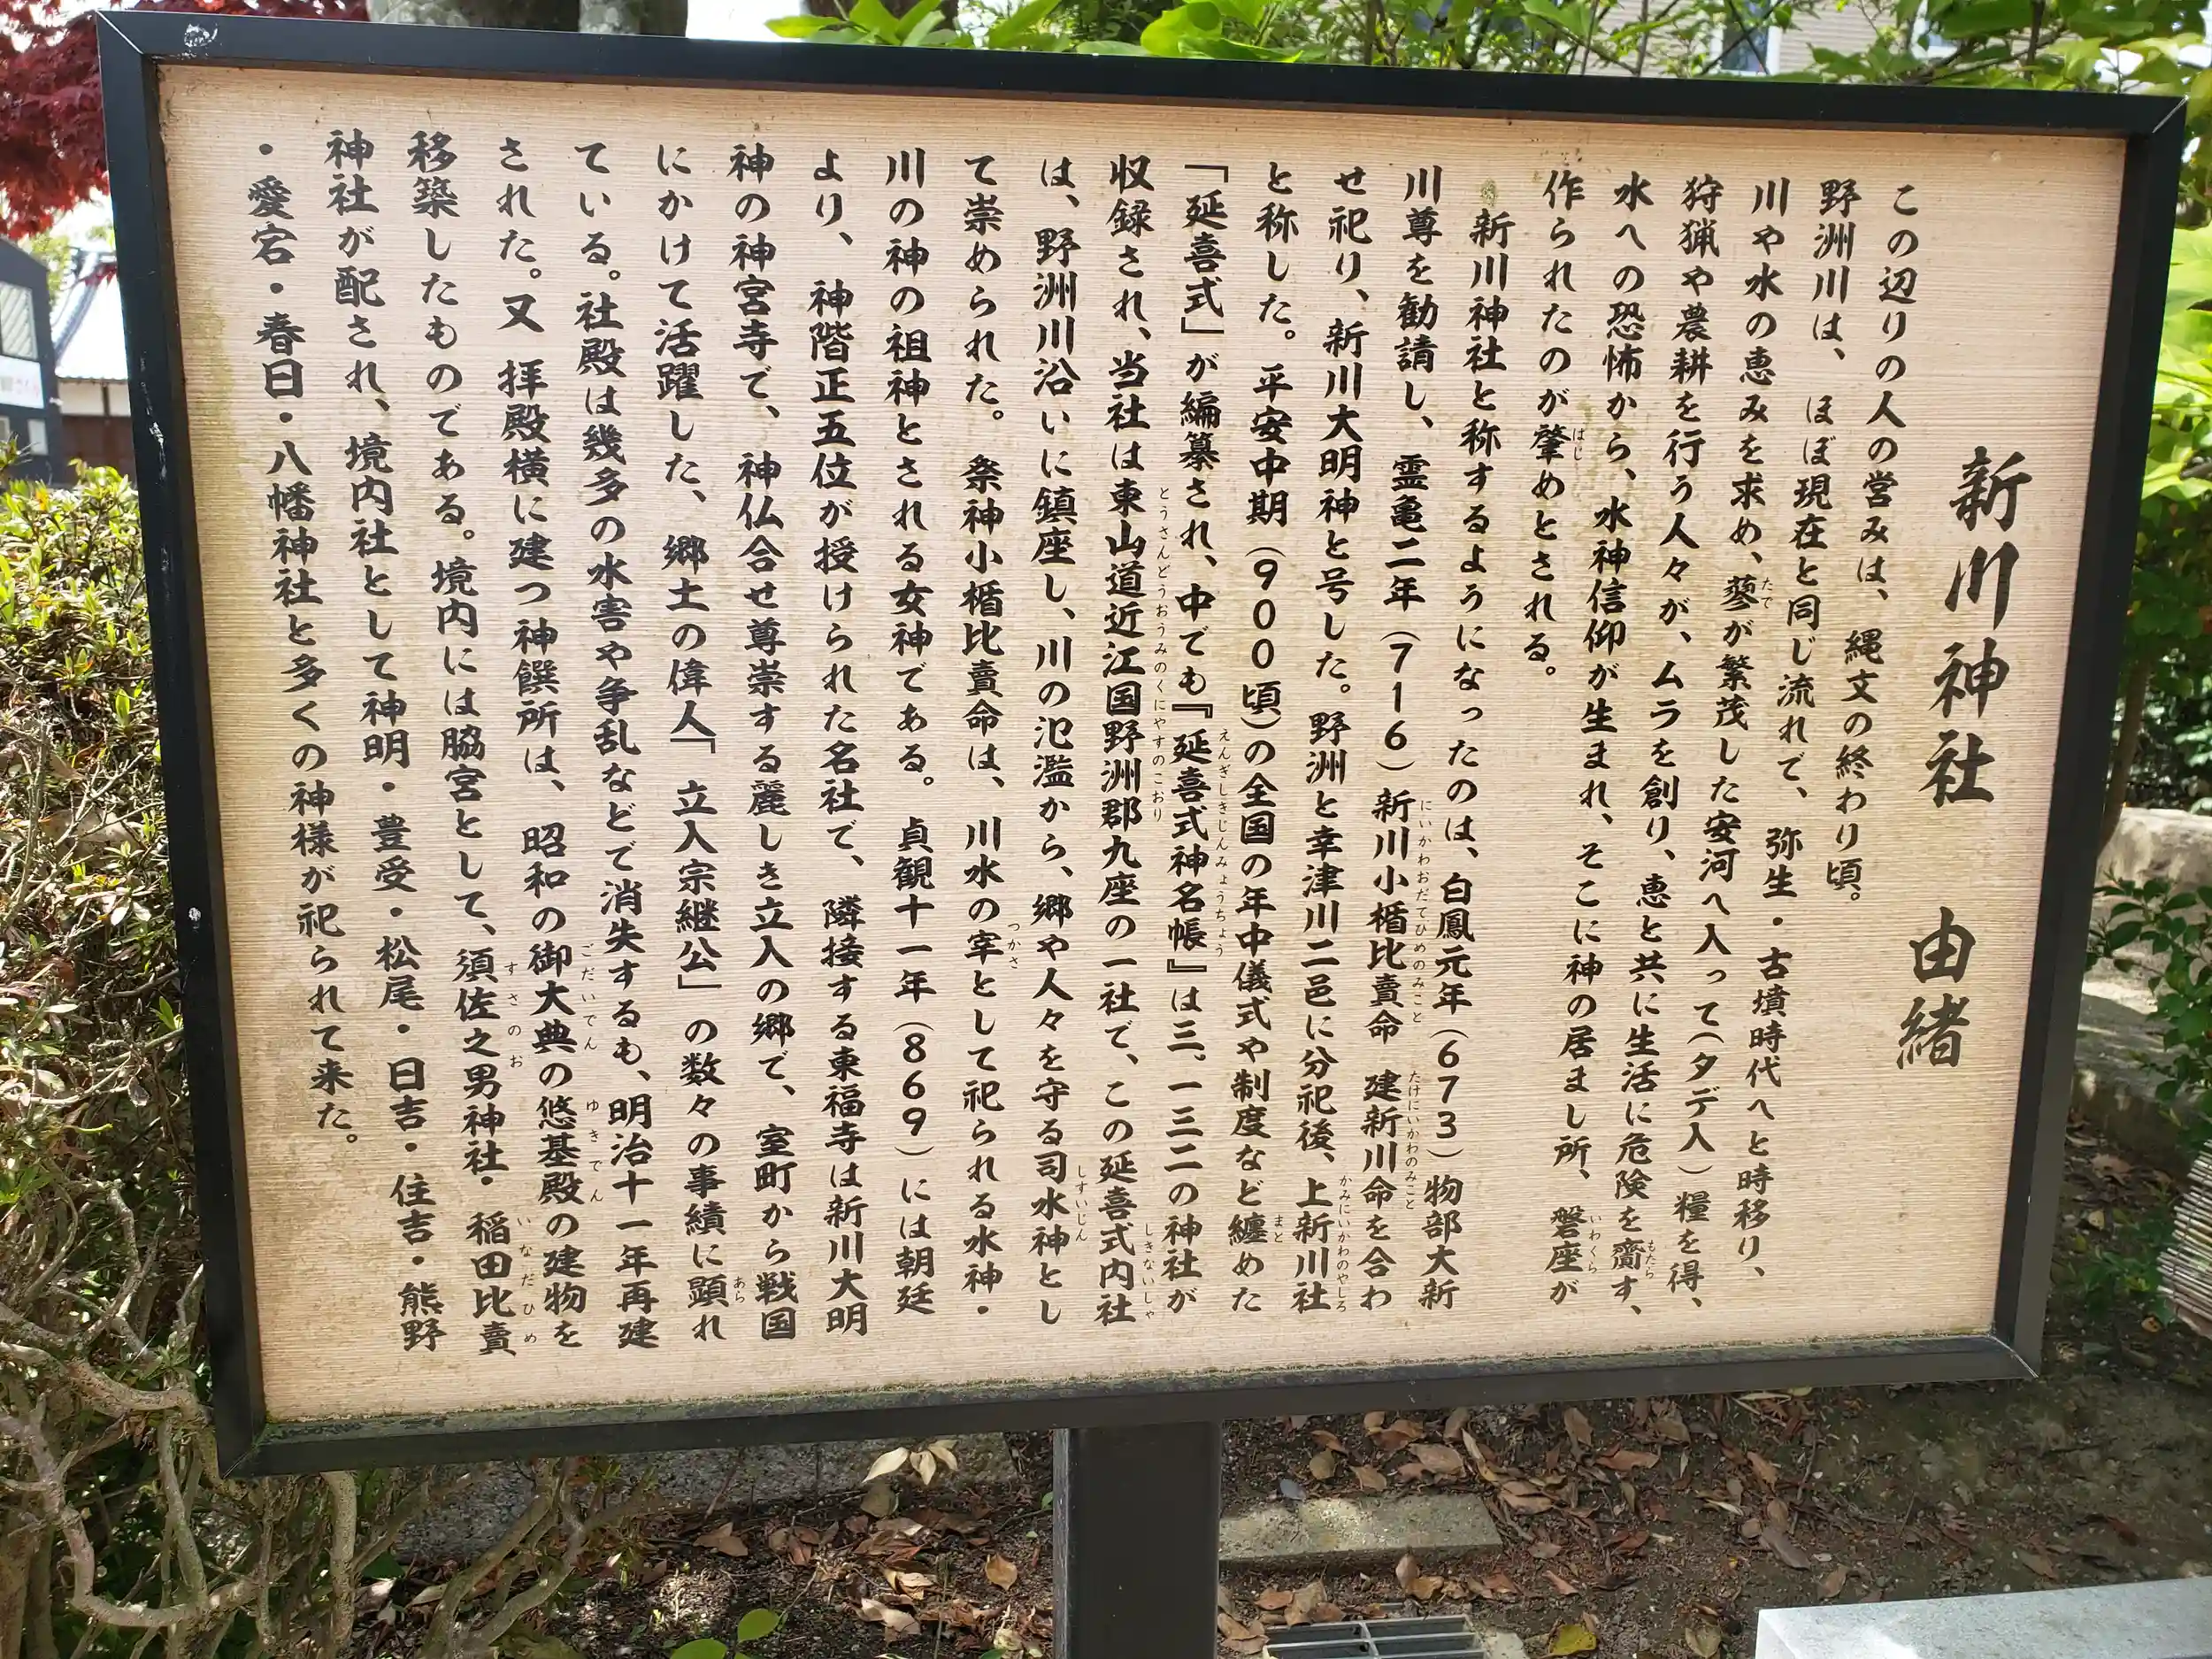 新川神社 由緒
この辺りの人の営みは、縄文の終わり頃。
野洲川は、ほぼ現在と同じ流れで、弥生・古墳時代へと時移り、
川や水の恵みを求め、蓼が繁茂した安河へ入って(タデ入)糧を得、
狩猟や農耕を行う人々が、ムラを創り、恵と共に生活に危険を齎す、
水への恐怖から、水神信仰が生まれ、そこに神の居まし所、磐座が
作られたのが肇めとされる。
新川神社と称するようになったのは、白鳳元年(673)物部大新
川尊を勧請し、霊亀二年(716)新川小楯比賣命 建新川命を合わ
せ祀り、新川大明神と号した。野洲と幸津川二邑に分祀後、上新川社
と称した。平安中期(900頃)の全国の年中儀式や制度など纏めた
「延喜式」が編纂され、中でも『延喜式神名帳』は三、一三二の神社が
収録され、当社は東山道近江国野洲郡九座の一社で、この延喜式内社
は、野洲川沿いに鎮座し、川の氾濫から、郷や人々を守る司水神とし
て崇められた。祭神小楯比賣命は、川水の宰として祀られる水神・
川の神の祖神とされる女神である。貞観十一年(869)には朝廷
より、神階正五位が授けられた名社で、隣接する東福寺は新川大明
神の神宮寺で、神仏合せ尊崇する麗しき立入の郷で、室町から戦国
にかけて活躍した、郷土の偉人「立入宗継公」の数々の事績に顕れ
ている。社殿は幾多の水害や争乱などで消失するも、明治十一年再建
された。又 拝殿横に建つ神饌所は、昭和の御大典の悠基殿の建物を
移築したものである。境内には脇宮として、須佐之男神社・稲田比賣
神社が配され、境内社として神明・豊受・松尾・日吉・住吉・熊野
・愛宕・春日・八幡神社と多くの神様が祀られて来た。